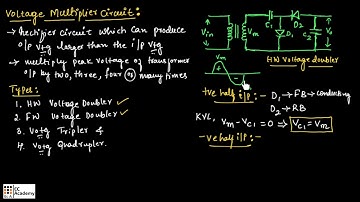 Voltage Multiplier Circuit:
→ Rectifier circuit which can produce
O/P Vtg larger than the i/p Vtg
→ multiply peak voltage of transformer
O/P by two, three, four or many times
Types:
1. HW Voltage Doubler ✓
2. FW Voltage Doubler ✓
3. Voltg Tripler &
4. Voltg Quadrupler.
Vm
Vm
C1
D2
D1
C2
Vo
HW Voltage doubler
Vm
+ve half i/p :- D1 → FB → conducting
D2 → RB
KVL, Vm - Vc1 = 0 ⇒ Vc1 = Vm
-ve half i/p :-
EC Academy